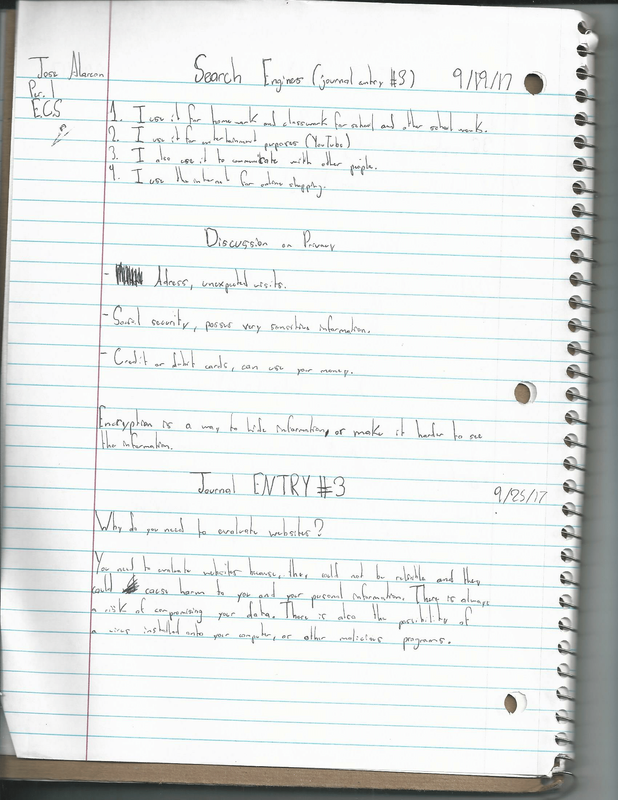 Jose Alarcon
Search Engines (journal entry #3) 9/19/17
Per. 1
ECS
1. I use it for homework and classwork for school and other school work.
2. I use it for entertainment purposes (YouTube)
3. I also use it to communicate with other people.
4. I use the internet for online shopping.
Discussion on Privacy
- Adress, unexpected visits.
- Social security, posses very sensitive information.
- Credit or debit cards, can use your money.
Encryption is a way to hide information, or make it harder to see
the information.
Journal ENTRY #3 9/25/17
Why do you need to evaluate websites?
You need to evaluate websites because, they could not be reliable and they
could cause harm to you and your personal information. There is always
a risk of compromising your data. There is also the possibility of
a virus installed onto your computer, or other malicious programs.